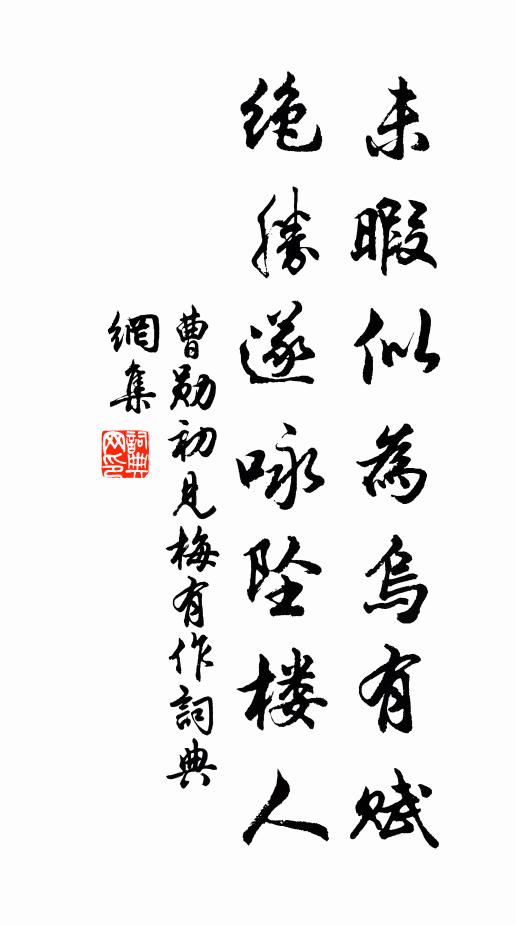 未暇似為烏有賦
绝勝遂咏坠楼人
曹勛初見梅有作詞典
網集
詞典
网印